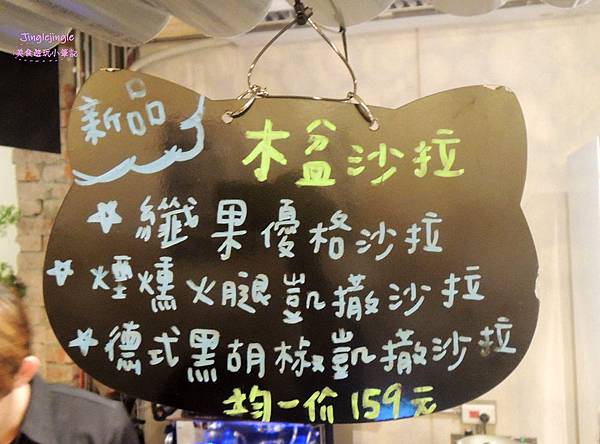 Jinglejingle
美食遊玩小筆記
新品
木盆沙拉
☆纖果優格沙拉
☆煙燻火腿凱撒沙拉
☆德式黑胡椒凱撒沙拉
均一价159元